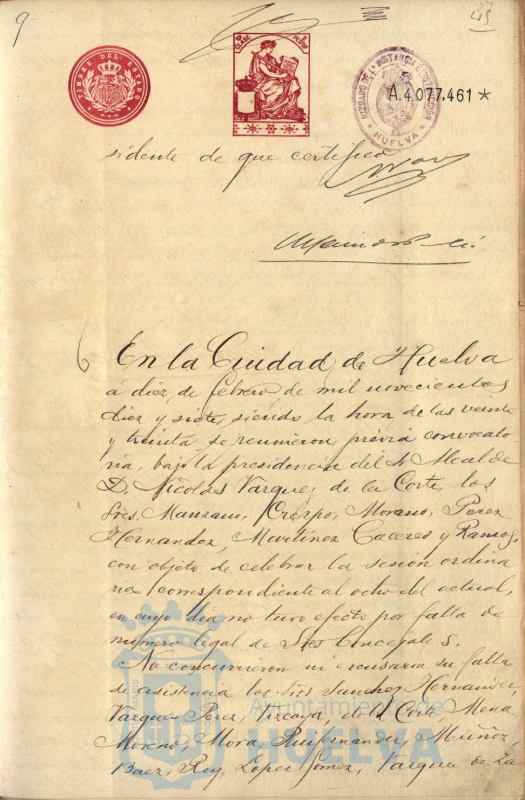 9
TIMBRE DEL ESTADO
JUZGADO DE 1ª INSTANCIA E INSTRUCCION
HUELVA
A.4.077.461 *
sidente de que certifico
En la Ciudad de Huelva
á diez de febrero de mil novecientos
diez y siete, siendo la hora de las veinte
y treinta, se reunieron prévia convocato
ria, bajo la presidencia del Sr Alcalde
D. Nicolás Vazquez de la Corte, los
Sres. Manzano, Crespo, Morano, Perez
Hernandez, Martinez Caceres y Ramos,
con objeto de celebrar la sesión ordina
ria correspondiente al ocho del actual,
en cuyo dia no tuvo efecto por falta de
numero legal de Sres Concejales.
No concurrieron ni excusaron su falta
de asistencia los Sres Sanchez Hernandez,
Vazquez Perez, Vizcaya, de la Corte, Mena
Moreno, Mora, Ruifernandez, Muñoz,
Baez, Rey, Lopez Gomez, Vazquez de Za
Ayuntamiento de
HUELVA